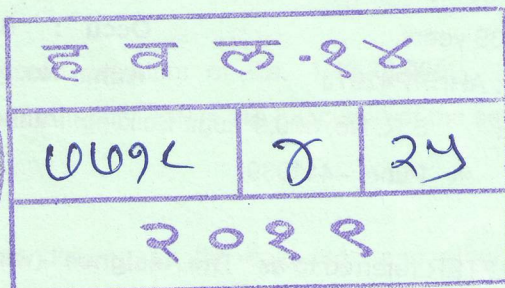 ह व ल - १४
७७१८ ४ २५
२०१९